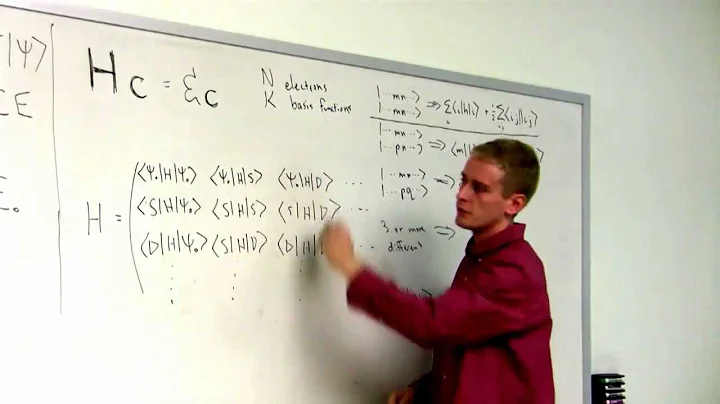 |Ψ⟩
CE
E.
H c = ℰ c
N electrons
K basis functions
|···mn···⟩
|···mn···⟩ ⇒ Σ⟨i|h|i⟩ + ½Σ⟨ij||ij⟩
|···mn···⟩
|···pn···⟩ ⇒ ⟨m|
|···mn···⟩
|···pq···⟩ ⇒
3 or more
different ⇒
H =
⟨Ψ₀|H|Ψ₀⟩ ⟨Ψ₀|H|S⟩ ⟨Ψ₀|H|D⟩ ···
⟨S|H|Ψ₀⟩ ⟨S|H|S⟩ ⟨S|H|D⟩ ···
⟨D|H|Ψ₀⟩ ⟨S|H|D⟩ ⟨D|H| ···
⋮ ⋮ ⋮